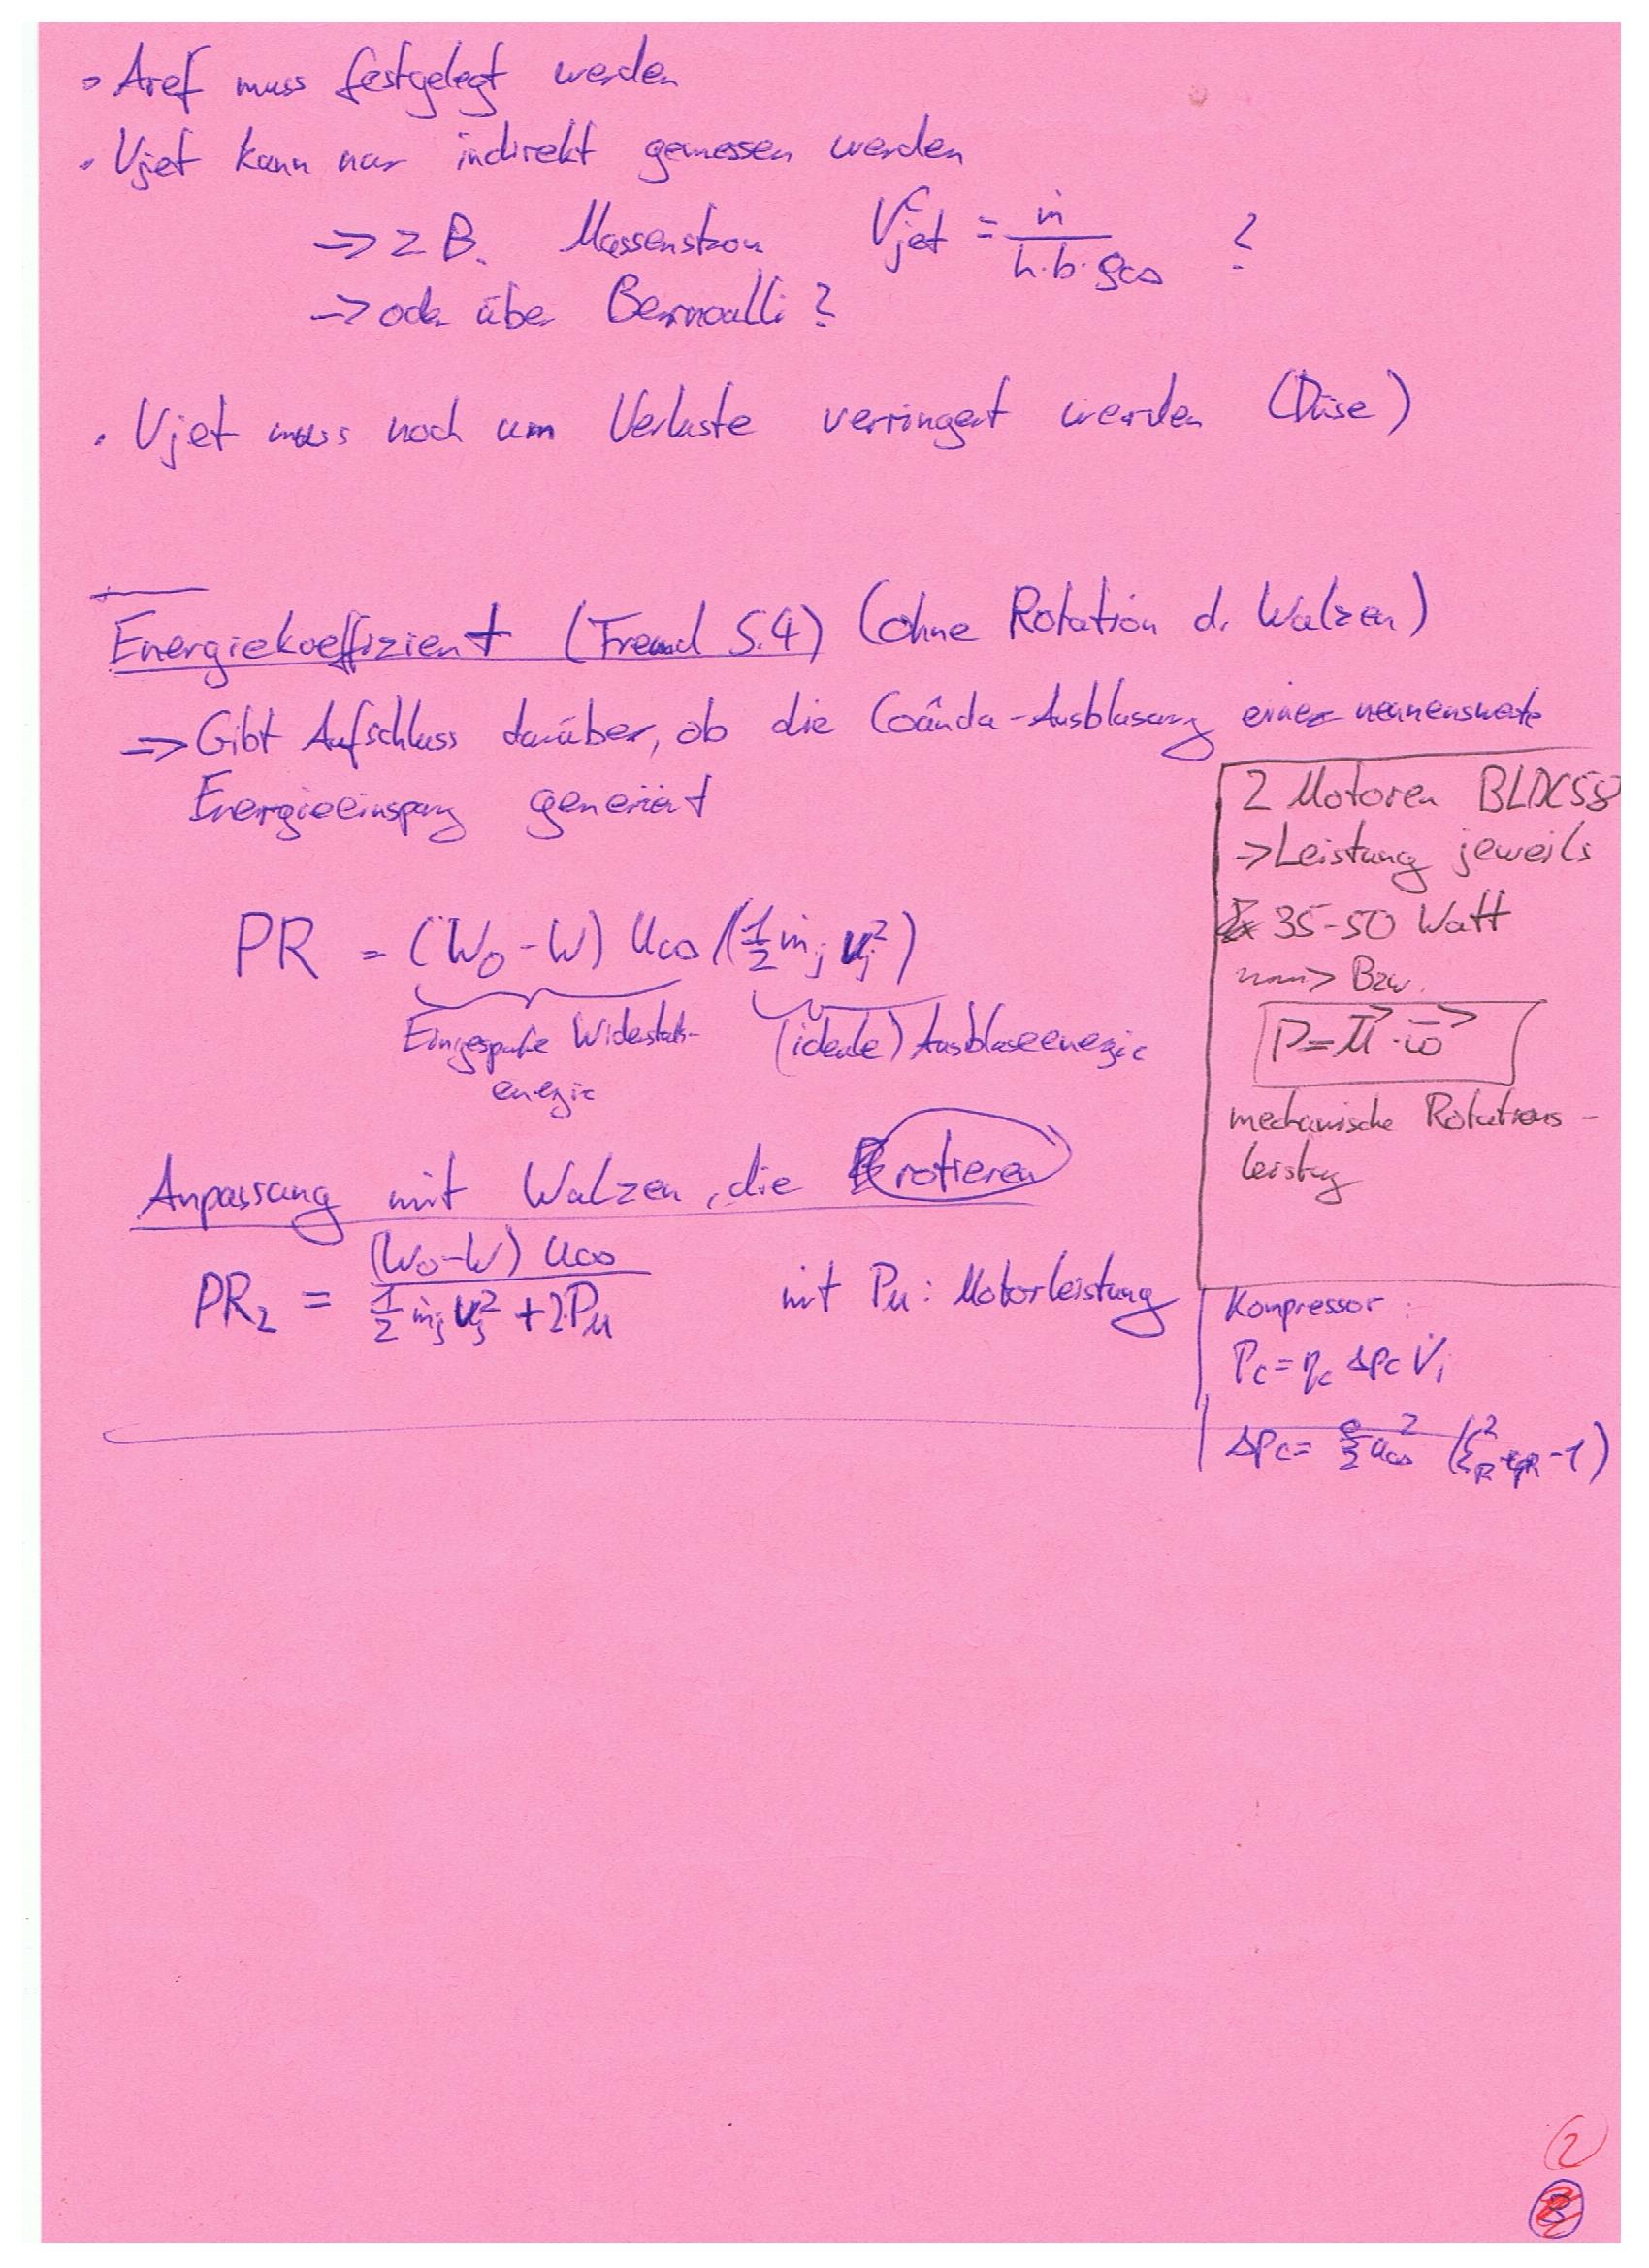 • Aref muss festgelegt werden
• Vjet kann nur indirekt gemessen werden
=> z B. Massenstrom Vjet = ṁ / (h·b·ρ∞) ?
=> oder über Bernoulli?
• Vjet muss noch um Verluste verringert werden (Düse)
Energiekoeffizient (Freund S.4) (ohne Rotation d. Walzen)
=> Gibt Aufschluss darüber, ob die Coânda-Ausblasung eine nennenswerte
Energieeinsparung generiert
PR = (W₀-W) u∞ / (1/2 ṁj uj²)
Eingesparte Widerstands-
energie
(ideale) Ausblaseenergie
Anpassung mit Walzen, die rotieren
PR₂ = (W₀-W) u∞ / (1/2 ṁj uj² + 2·PM) mit PM: Motorleistung
2 Motoren BLDC58
-> Leistung jeweils
35-50 Watt
-> Bzw.
P = M⃗ · ω⃗
mechanische Rotations-
leistung
Kompressor:
Pc = ηc Δpc V̇j
Δpc = ρ/2 u∞²
2